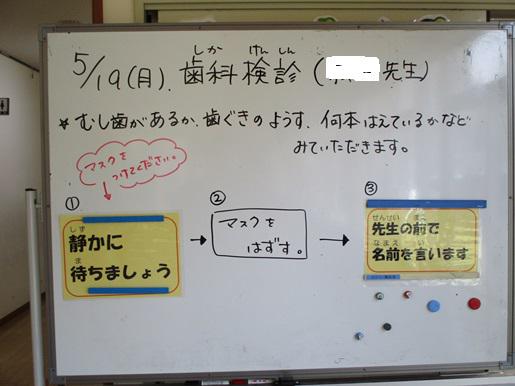 しか けんしん
5/19(月). 歯科検診( 先生)
* むし歯があるか、歯ぐきのようす、何本はえているかなど
みていただきます。
マスクを
つけてください。
①
しず
静かに
ま
待ちましょう
②
マスクを
はずす。
③
せんせい まえ
先生の前で
なまえ い
名前を言います